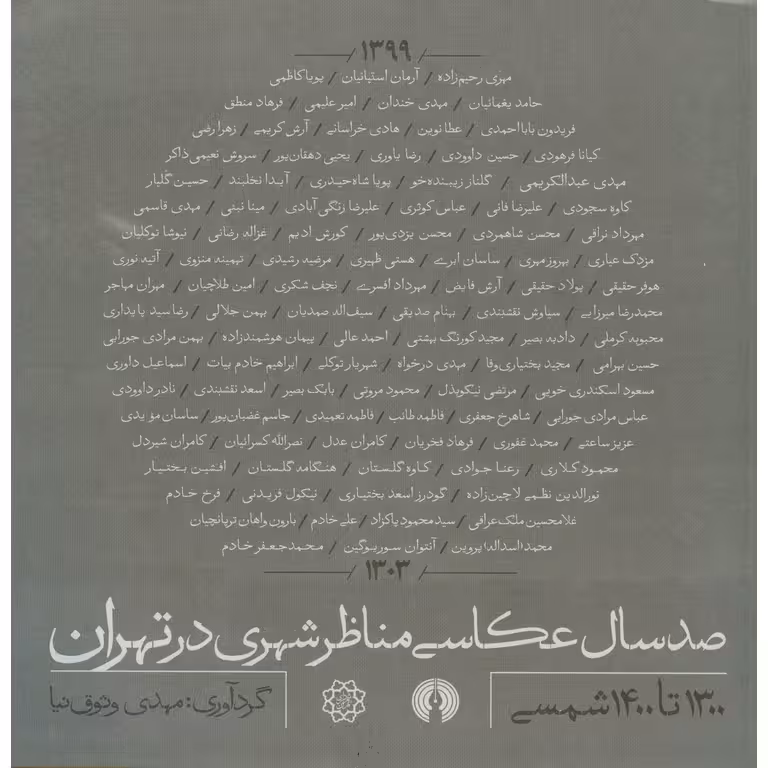 ۱۳۹۹
مهری رحیم‌زاده / آرمان استپانیان / پویا کاظمی
حامد یغمائیان / مهدی خندان / امیر علیمی / فرهاد منطق
فریدون بابااحمدی / عطا نوین / هادی خراسانی / آرش کریمی / زهرا رضی
کیانا فرهودی / حسین داوودی / رضا یاوری / یحیی دهقان‌پور / سروش نعیمی ذاکر
مهدی عبدالکریمی / گلناز زیبنده‌خو / پویا شاه‌حیدری / آیدا نخلبند / حسین گلیار
کاوه سجودی / علیرضا فانی / عباس کوثری / علیرضا زنگی‌آبادی / مینا نبئی / مهدی قاسمی
مهرداد نراقی / محسن شاهمردی / محسن یزدی‌پور / کورش ادیم / غزاله رضائی / نیوشا توکلیان
مزدک عیاری / بهروز مهری / ساسان ابری / هستی ظهیری / مرضیه رشیدی / تهمینه منزوی / آتیه نوری
هوفر حقیقی / پولاد حقیقی / آرش فایض / مهرداد افسری / نجف شکری / امین طلاچیان / مهران مهاجر
محمدرضا میرزایی / سیاوش نقشبندی / بهنام صدیقی / سیف‌اله صمدیان / بهمن جلالی / رضا سیدپایداری
محبوبه کرملی / دادبه بصیر / مجید کورنگ بهشتی / احمد عالی / پیمان هوشمندزاده / بهمن مرادی جورابی
حسین بهرامی / مجید بختیاری‌وفا / مهدی درخواه / شهریار توکلی / ابراهیم خادم بیات / اسماعیل داوری
مسعود اسکندری خویی / مرتضی نیکوبذل / محمود مروتی / بابک بصیر / اسعد نقشبندی / نادر داوودی
عباس مرادی جورابی / شاهرخ جعفری / فاطمه طائب / فاطمه تعمیدی / جاسم غضبان‌پور / ساسان مؤیدی
عزیز ساعتی / محمد غفوری / فرهاد فخریان / کامران عدل / نصرالله کسرائیان / کامران شیردل
محمود کلاری / رعنا جوادی / کاوه گلستان / هنگامه گلستان / افشین بختیار
نورالدین نظمی لاچین‌زاده / گودرز اسعد بختیاری / نیکول فریدنی / فرخ خادم
غلامحسین ملک‌عراقی / سید محمود پاکزاد / علی خادم / بارون واهان ترپانچیان
محمد (اسداله) پروین / آنتوان سوریوگین / محمدجعفر خادم
۱۳۰۳
صد سال عکاسی مناظر شهری در تهران
۱۳۰۰ تا ۱۴۰۰ شمسی
گردآوری: مهدی وثوق‌نیا